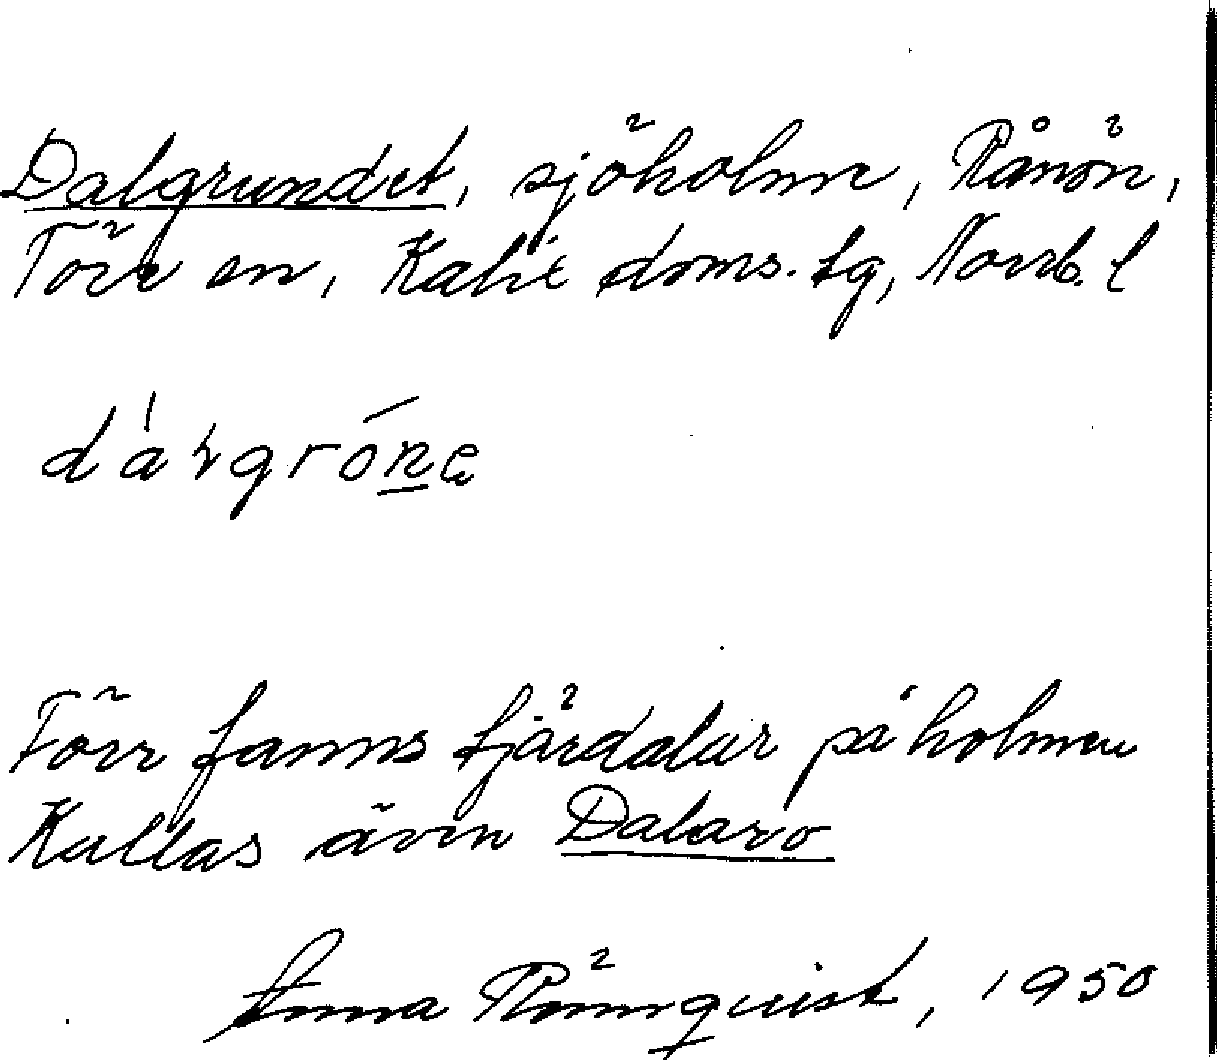 Dalgrundet, sjöholme, Rånön,
Töre sn, Kalix doms. tg, Norrb. l
dályróna
Förr fanns tjärdalar på holmen
Kallas även Dalarö
Anna Rönnquist, 1950